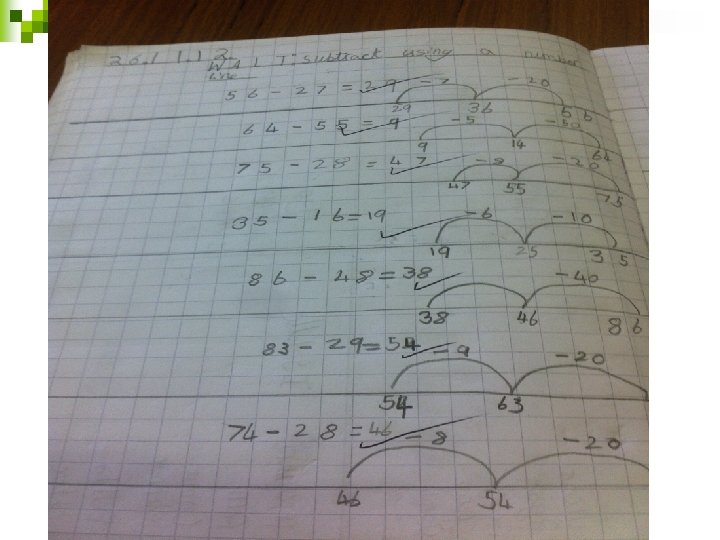 26.1 1.1 2.
WAL T: subtract using a number
line
56 - 27 = 29 - 7 - 20
29 36 56
64 - 55 = 9 - 5 - 50
9 14 64
75 - 28 = 47 - 8 - 20
47 55 75
35 - 16 = 19 - 6 - 10
19 25 35
86 - 48 = 38 - 40
38 46 86
83 - 29 = 54 - 9 - 20
54 63
74 - 28 = 46 - 8 - 20
46 54